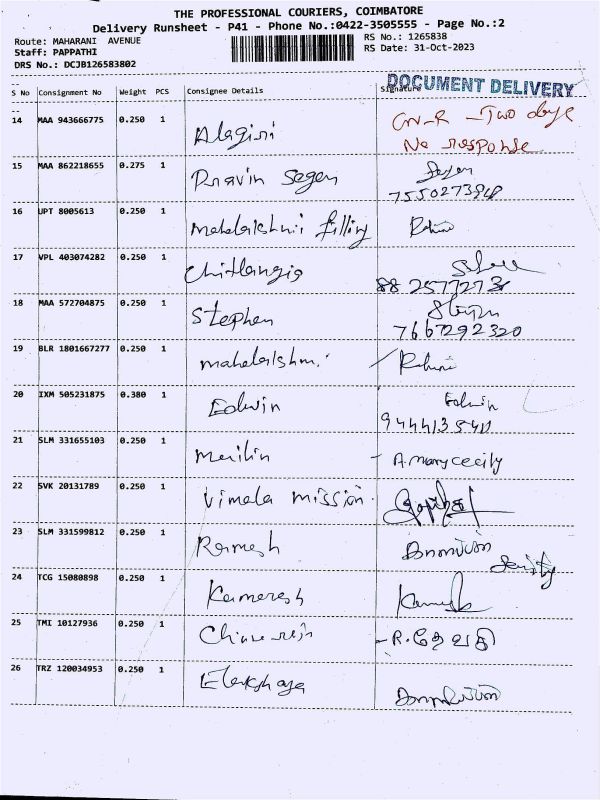 THE PROFESSIONAL COURIERS, COIMBATORE
Delivery Runsheet - P41 - Phone No.:0422-3505555 - Page No.:2
Route: MAHARANI AVENUE
Staff: PAPPATHI
DRS No.: DCJB126583802
RS No.: 1265838
RS Date: 31-Oct-2023
DOCUMENT DELIVERY
S No Consignment No Weight PCS Consignee Details Signature
14 MAA 943666775 0.250 1 Alagiri - Two days
No response
15 MAA 862218655 0.275 1 Pravin Segan
7550273948
16 UPT 8005613 0.250 1 mahalakshmi filling
17 VPL 403074282 0.250 1 Chitlangia
88 25772731
18 MAA 572704875 0.250 1 Stephen
7667292320
19 BLR 1801667277 0.250 1 mahalakshmi
20 IXM 505231875 0.380 1 Edwin Edwin
21 SLM 331655103 0.250 1 Merilin - A.marycecily
22 SVK 20131789 0.250 1 Vimala mission.
23 SLM 331599812 0.250 1 Ramesh
24 TCG 15080898 0.250 1 Kamaresh
25 TMI 10127936 0.250 1 - R.தேவகி
26 TRZ 120034953 0.250 1